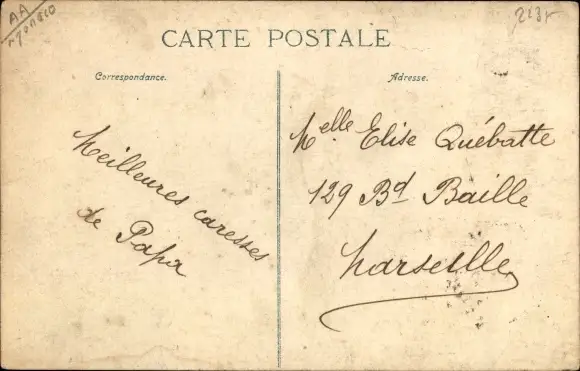 AA
CARTE POSTALE
Correspondance.
Adresse.
Meilleures caresses
de Papa
Melle Elise Québatte
129 Bd Baille
Marseille